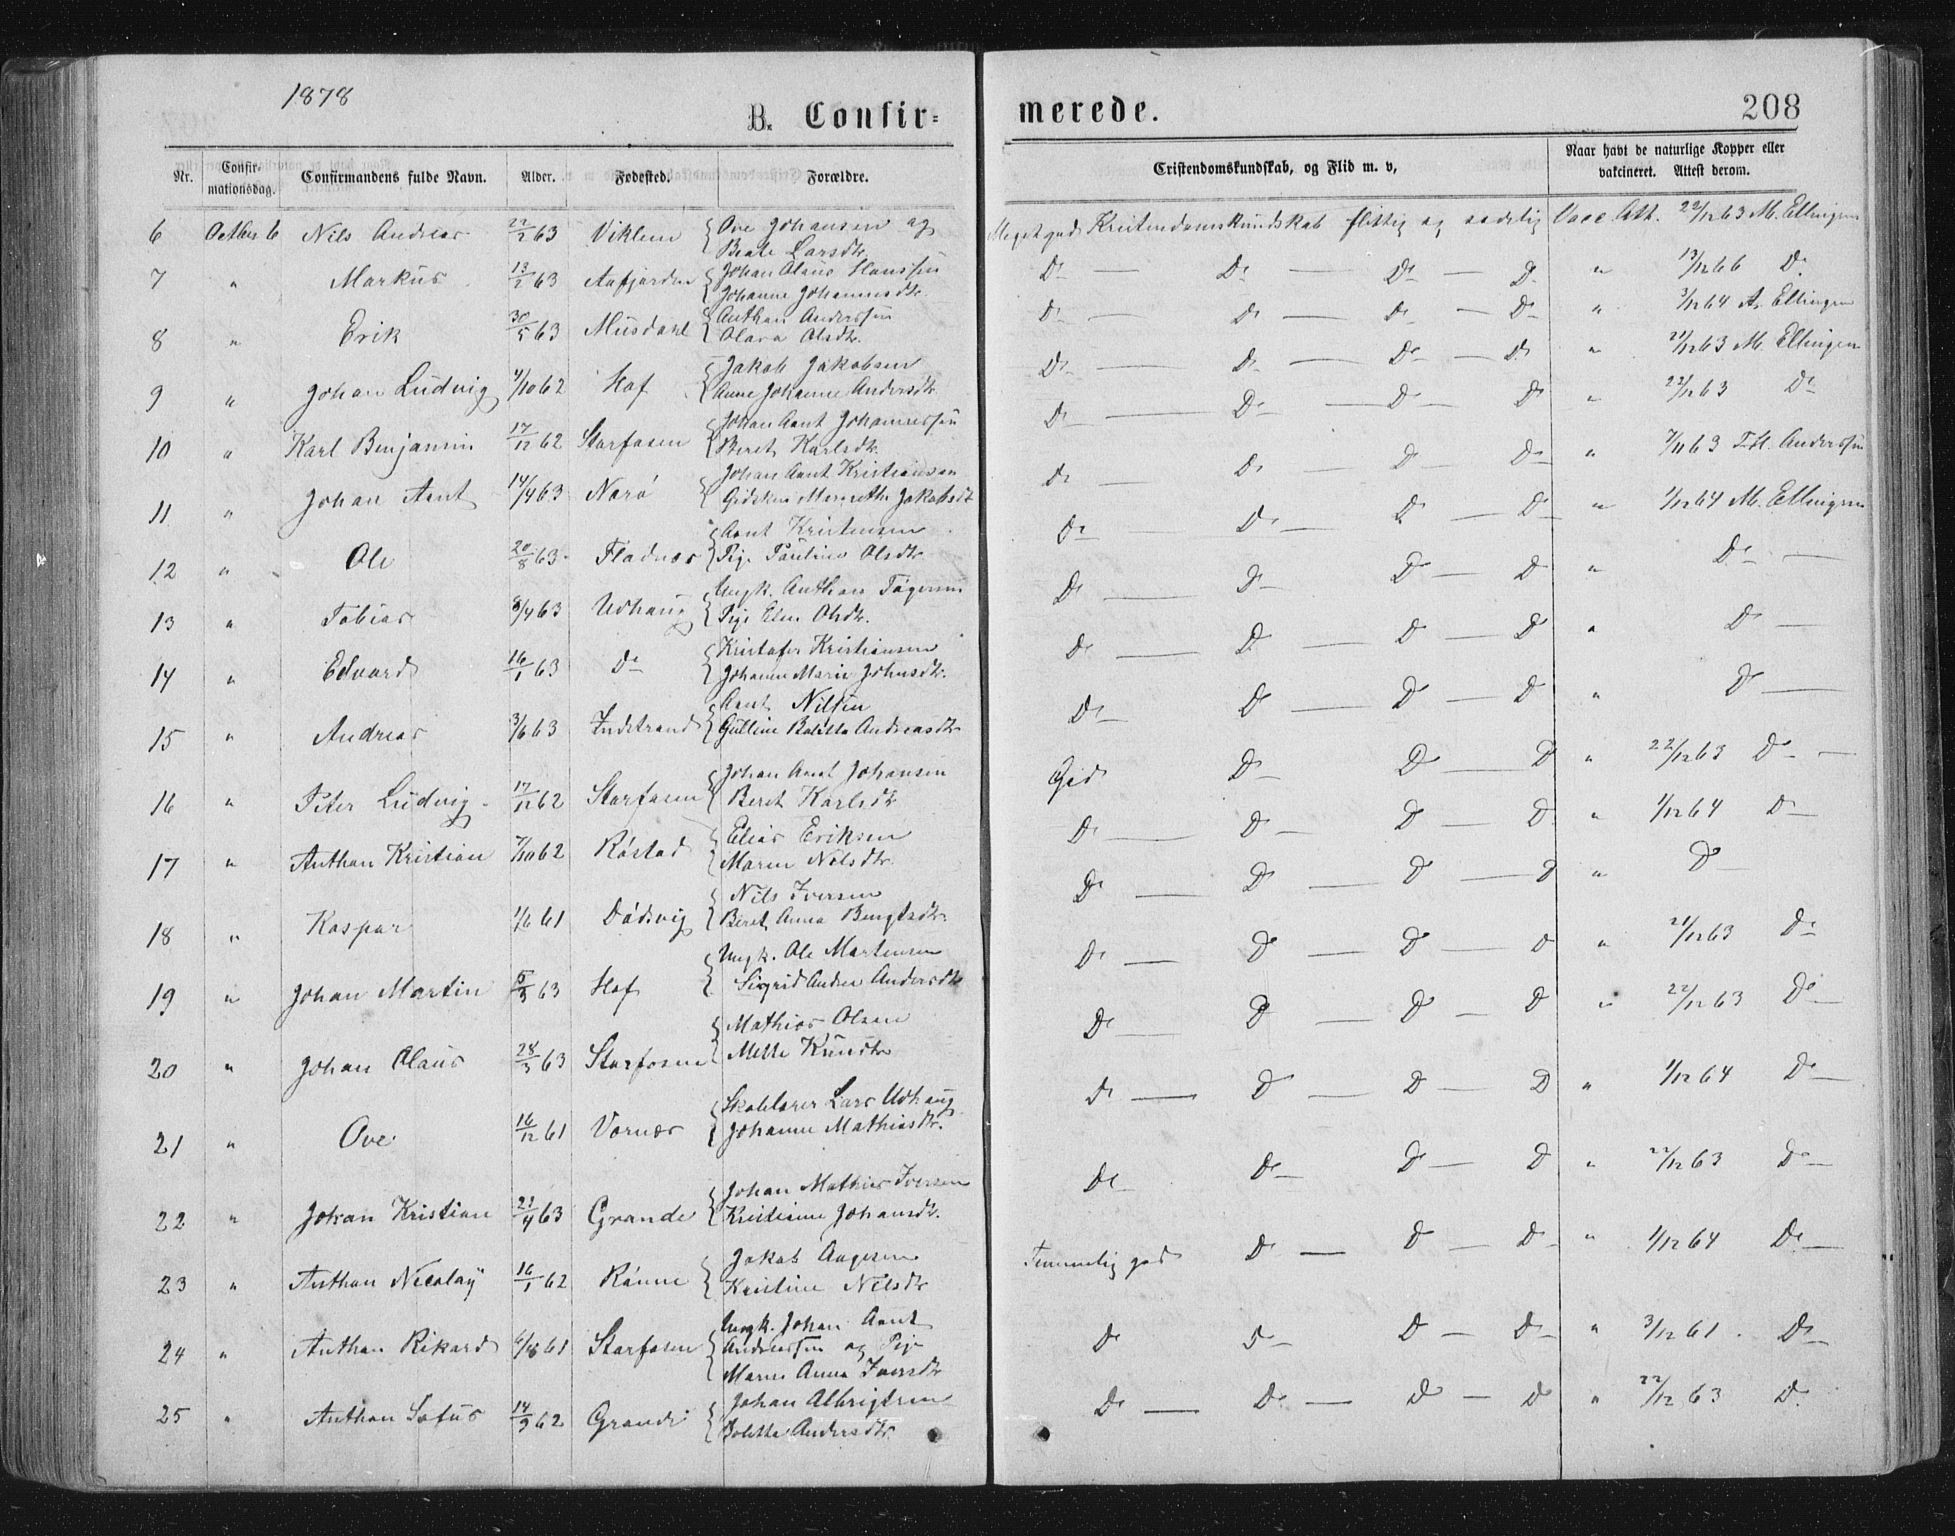 1878
B. Confir=
merede.
208
Nr. Confir-mationsdag. Confirmandens fulde Navn. Alder. Fødested. Forældre. Cristendomskundskab, og Flid m. v, Naar havt de naturlige Kopper eller vakcineret. Attest derom.
6 October 6 Nils Andreas 22/2 63 Viklem Ove Johansen og Meget god Kristendomskundskab flittig og sædelig Vacc. Att. 22/12 63 M. Ellingen
Beate Larsdtr.
7 " Markus 13/2 63 Aafjorden Johan Olaus Hanssen Do — Do — Do — Do " 19/12 66 Do
Johanne Johannesdtr.
8 " Erik 30/5 63 Musdahl Anthon Anderssen Do — Do — Do — Do " 3/12 64 A. Ellingen
Olava Olsdtr.
9 " Johan Ludvig 4/10 62 Hof Jakob Jakobsen Do — Do — Do — Do " 21/12 63 M. Ellingen
Anne Johanne Andersdtr.
10 " Karl Benjamin 17/12 62 Storfosen Johan Arnt Johannessen Do — Do — Do — Do " 22/12 63 Do
Beret Karlsdtr.
11 " Johan Arnt 14/4 63 Narö Johan Arnt Kristiansen Do — Do — Do — Do " 7/11 63 Anderssen
Gidsken Mereth Jakobsdt
12 " Ole 20/8 63 Fladnes Arnt Kristensen Do — Do — Do — Do " 1/12 64 M. Ellingen
Pige Pauline Olsdtr
13 " Tobias 8/4 63 Udhaug Ungk. Anthon Do — Do — Do — Do " Do —
Pige Elen Olsdtr.
14 " Edvard 16/1 63 Do Kristofer Kristiansen Do — Do — Do — Do " Do —
Johanne Marie Johnsdtr.
15 " Andreas 3/6 63 Indstrand Arnt Nilsen Do — Do — Do — Do " Do —
Gulline Andreasdtr
16 " Peter Ludvig 17/12 62 Storfosen Johan Arnt Johansen God Do — Do — Do " 22/12 63 Do —
Beret Karlsdtr
17 " Anthon Kristian 7/10 62 Röstad Elias Eriksen Do — Do — Do — Do " 1/12 64 Do —
Maren Nilsdtr.
18 " Kaspar 1/6 61 Dödsvig Nils Iversen Do — Do — Do — Do " Do —
Beret Anna Bengtsdtr.
19 " Johan Martin 5/3 63 Hof Ungk. Ole Martensen Do — Do — Do — Do " 21/12 63 Do
Sigrid Andrea Andersdtr
20 " Johan Olaus 28/3 63 Storfosen Mathias Olsen Do — Do — Do — Do " 22/12 63 Do —
Mette Knudtr
21 " Ove 16/12 61 Vernes Skolelærer Lars Udhaug Do — Do — Do — Do " 1/12 64 Do —
Johanne Mathiasdtr.
22 " Johan Kristian 21/4 63 Grande Johan Mathias Iversen Do Do — Do — Do " 22/12 63 Do —
Kristianne Johansdtr.
23 " Anthon Nicolay 16/1 62 Rönne Jakob Aagesen Temmelig god Do — Do — Do " 1/12 64 Do —
Kristine Nilsdtr
24 " Anthon Rikard 6/8 61 Storfosen Ungk. Johan Arnt Do Do Do — Do " 3/12 61. Do —
Anderssen og Pige
Maren Anna Iversdtr
25 " Anthon Sofus 14/9 62 Grande Johan Albrigtsen Do — Do — Do — Do " 22/12 63 Do
Bolette Andersdtr.